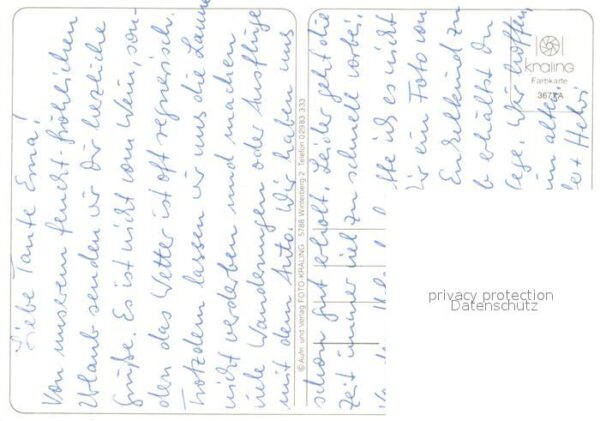 Liebe Tante Erna!
Von unserem feucht-fröhlichen
Urlaub senden wir Dir herzliche
Grüße. Es ist nicht vom Wein, son-
dern das Wetter ist oft regnerisch.
Trotzdem lassen wir uns die Laune
nicht verderben und machen
viele Wanderungen oder Ausflüge
mit dem Auto. Wir haben uns
schon gut erholt. Leider geht die
Zeit immer viel zu schnell vorbei.
ich es nicht
ein Foto von
Enkelkind zu
erhältst Du
Wir hoffen,
alten
© Aufn. und Verlag FOTO-KRALING · 5788 Winterberg 2 Telefon 02983 333
kraling
Farbkarte
privacy protection
Datenschutz